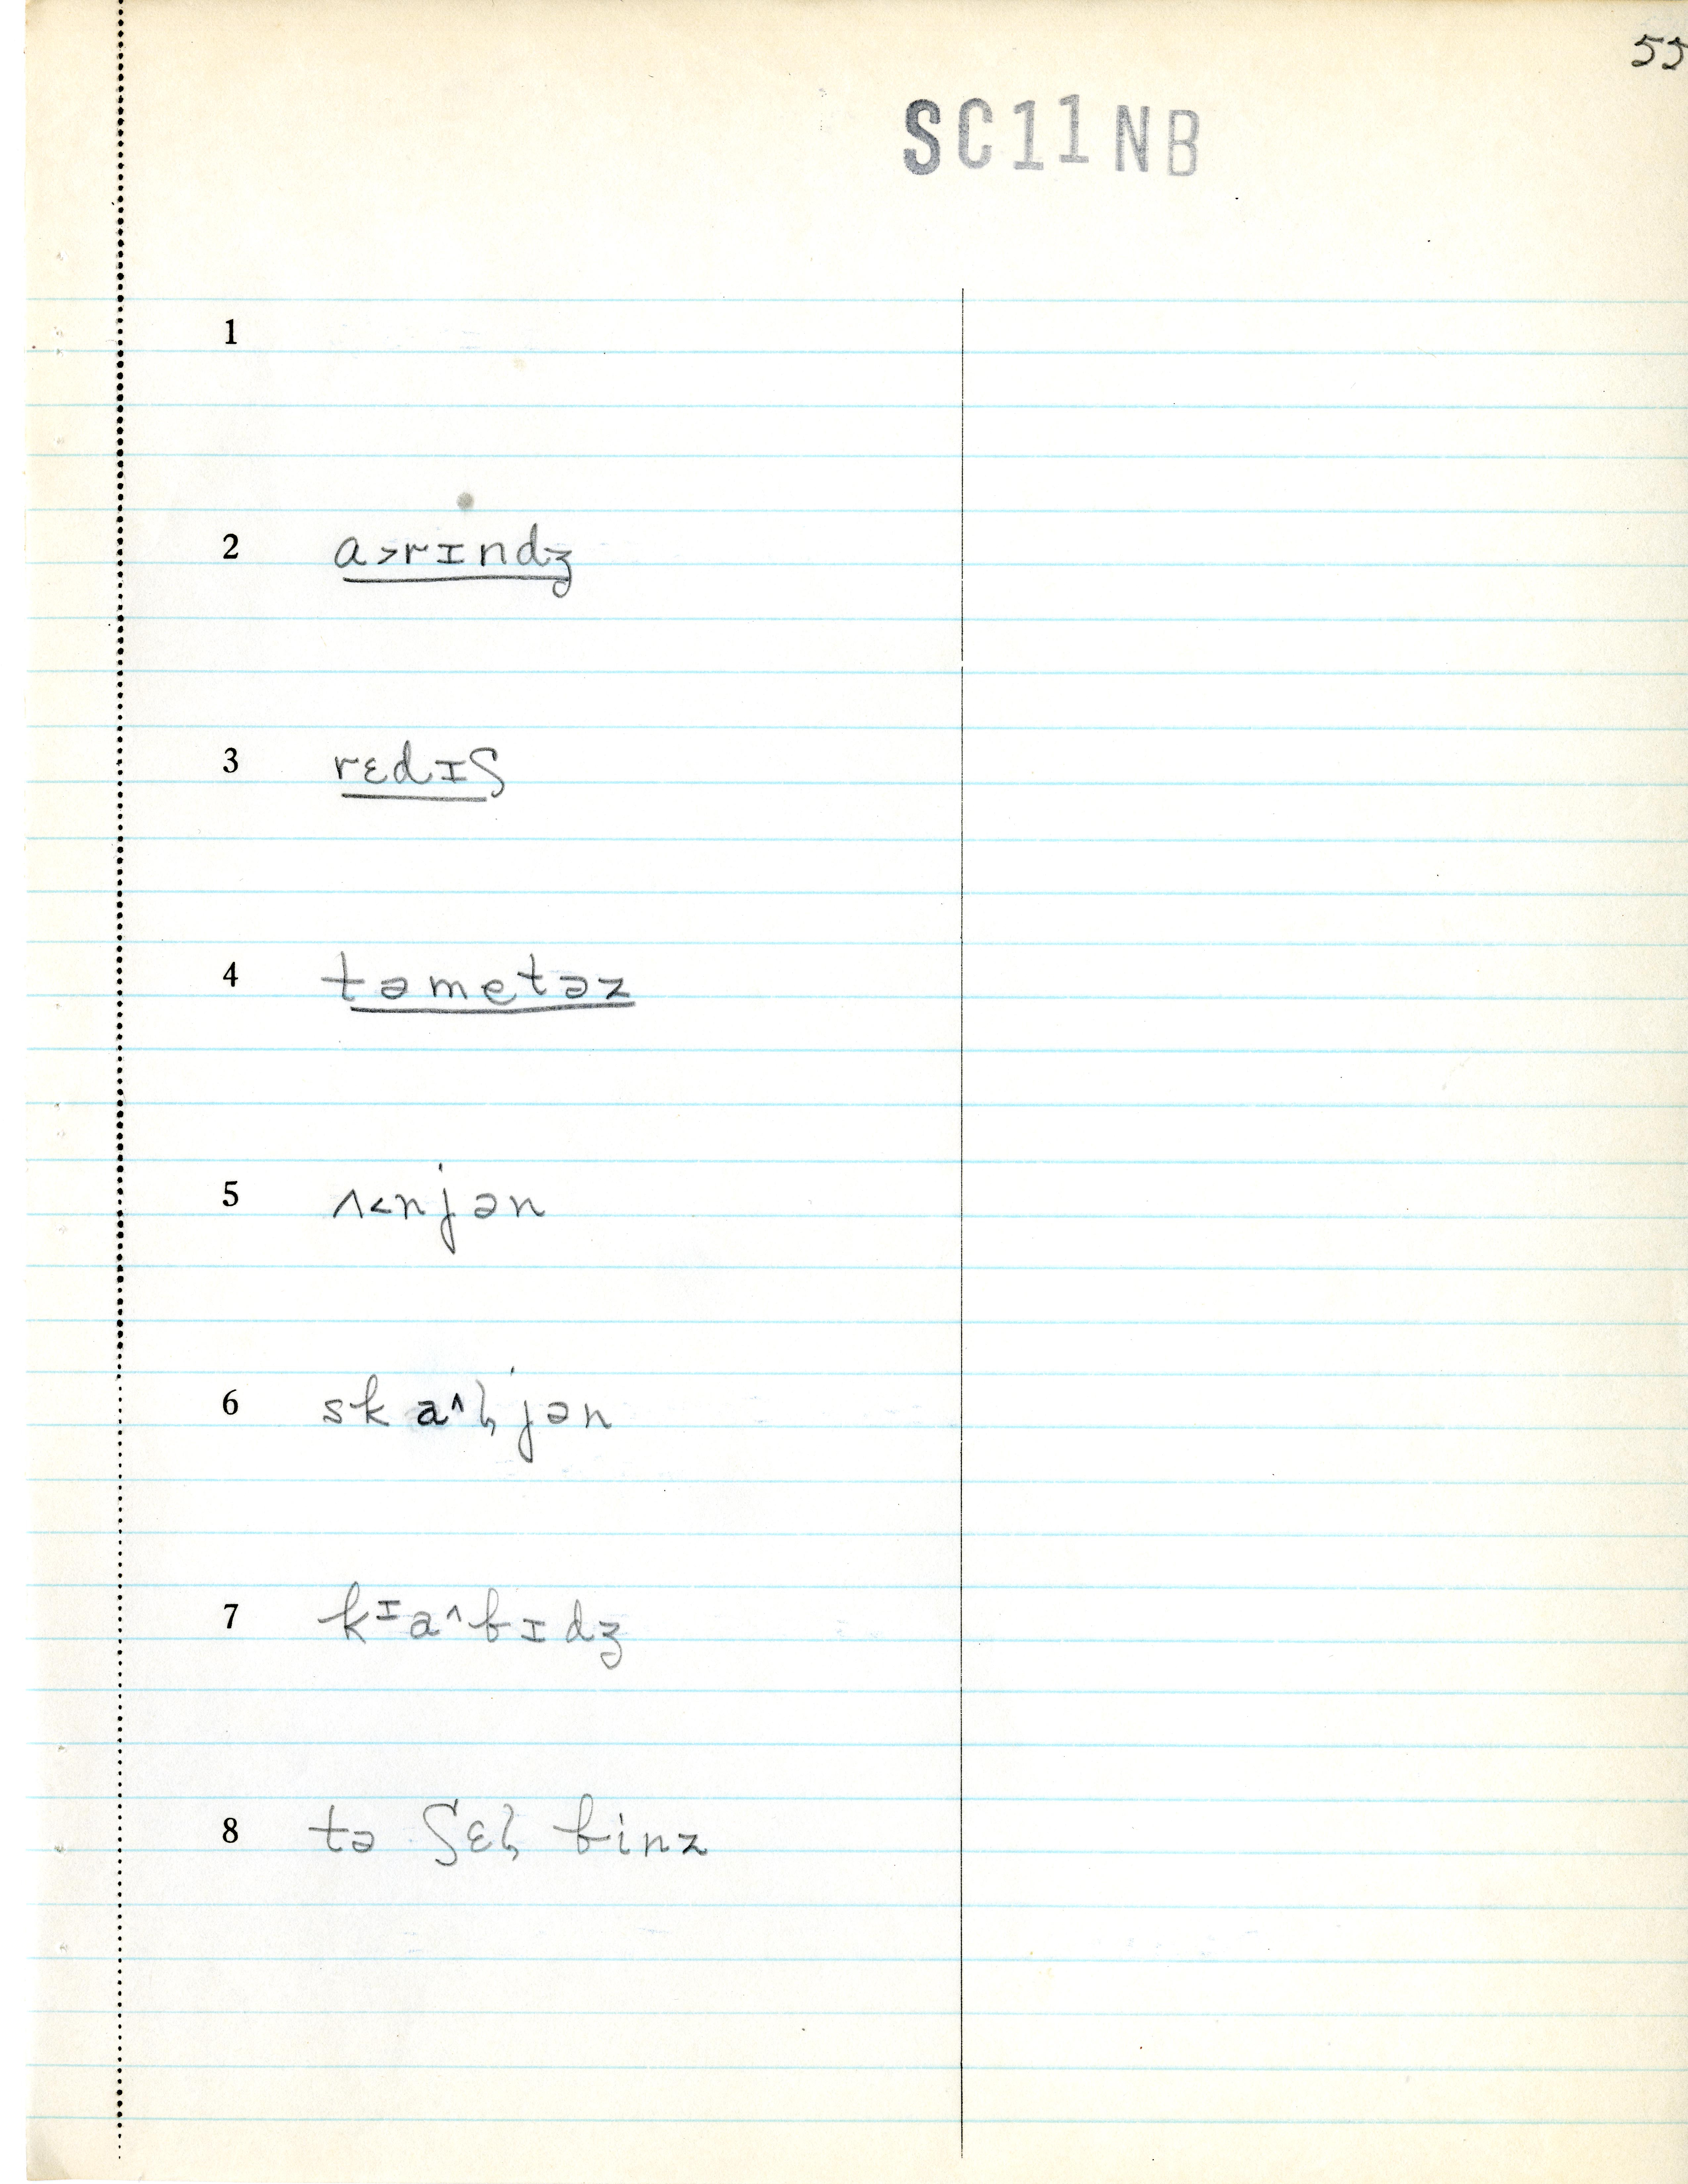 55
SC11NB
1
2 a˃rɪndʒ
3 rɛdɪʃ
4 təmetəz
5 ʌ˂njən
6 skaˆl̡jən
7 kᶦaˆbɪdʒ
8 tə ʃɛl̡ binz